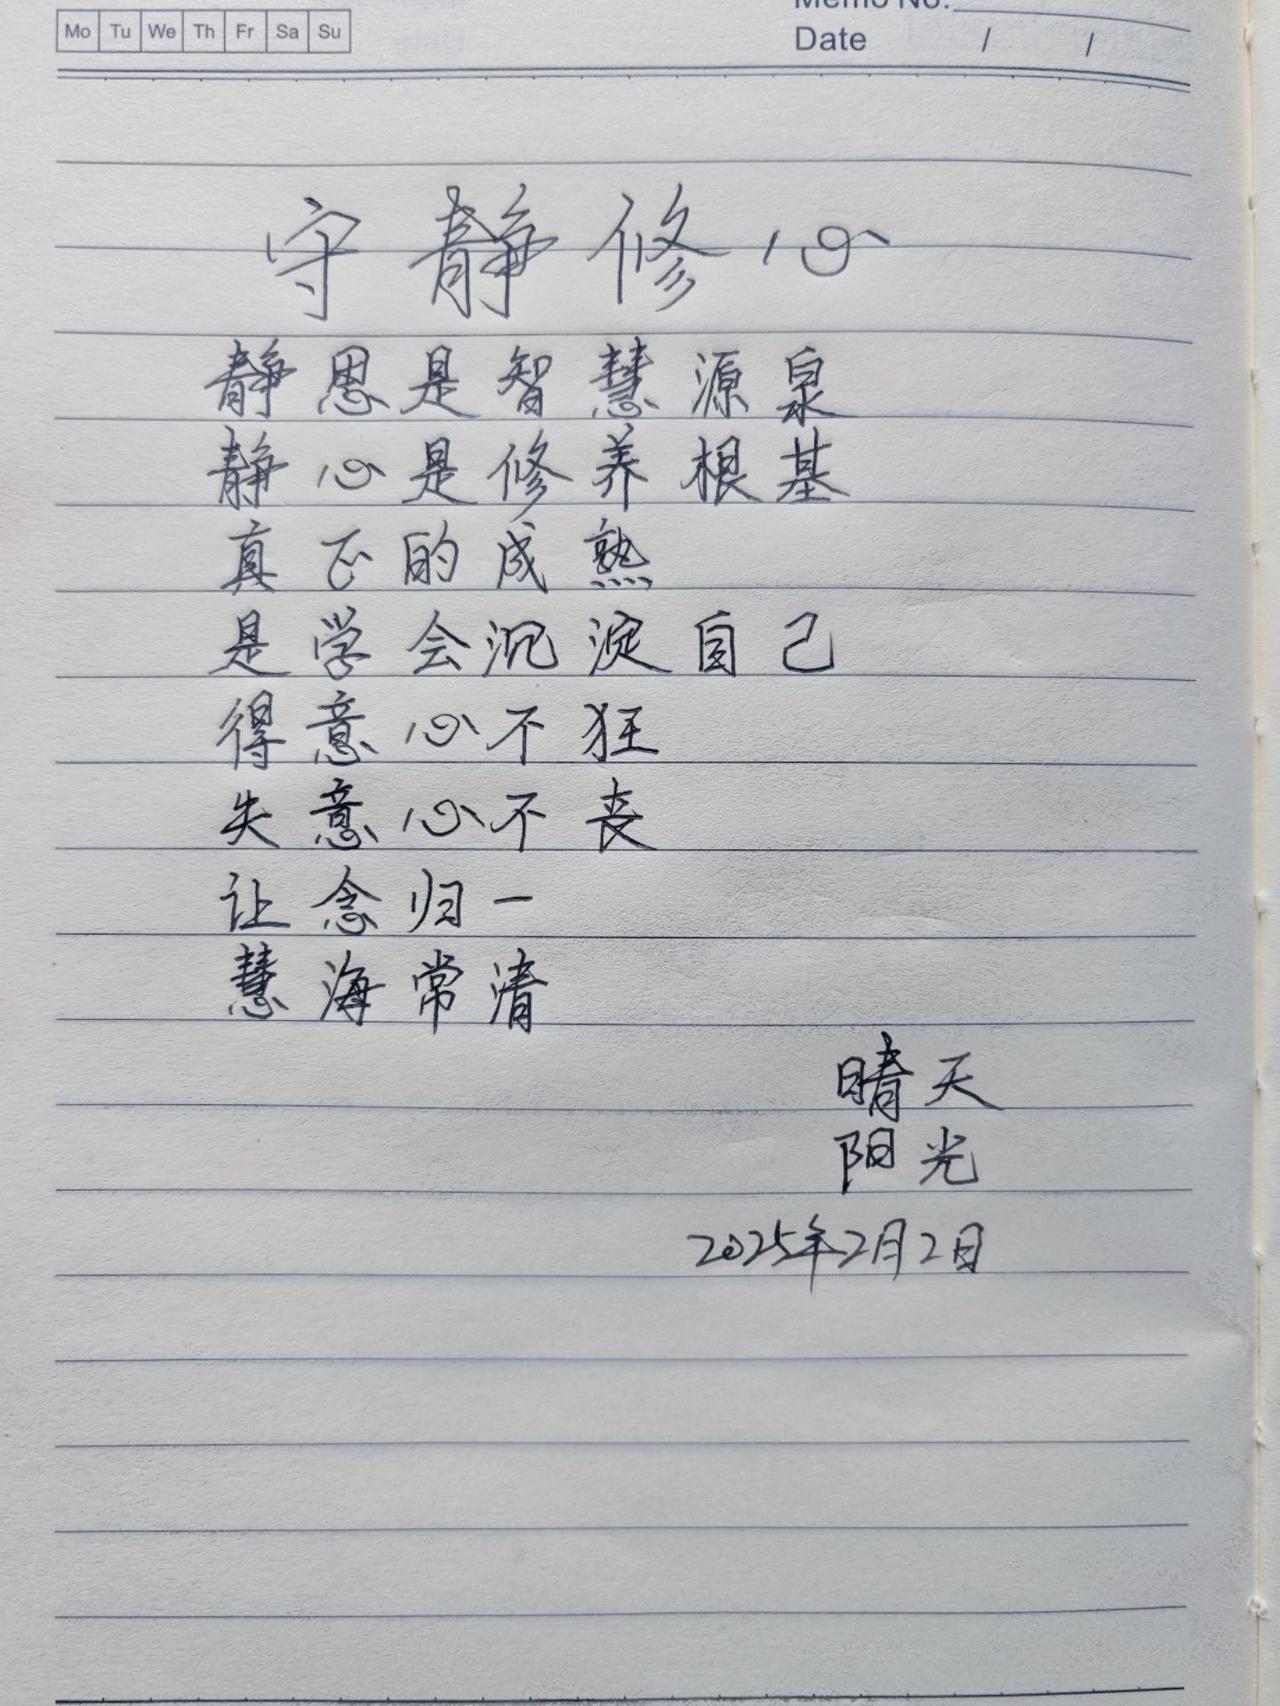 Mo Tu We Th Fr Sa Su
Memo No.
Date / /
守静修心
静思是智慧源泉
静心是修养根基
真正的成熟
是学会沉淀自己
得意心不狂
失意心不丧
让念归一
慧海常清
晴天
阳光
2025年2月2日